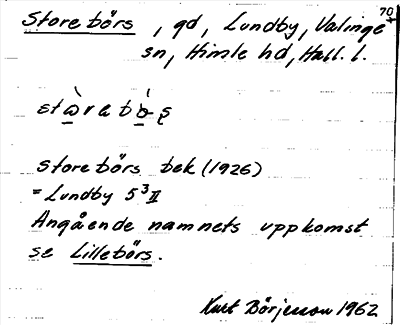 70
Storebörs, gd, Lundby, Valinge
sn, Himle hd, Hall. l.
Storebörs bek (1926)
= Lundby 5³II
Angående namnets uppkomst
se Lillebörs.
Kurt Börjesson 1962